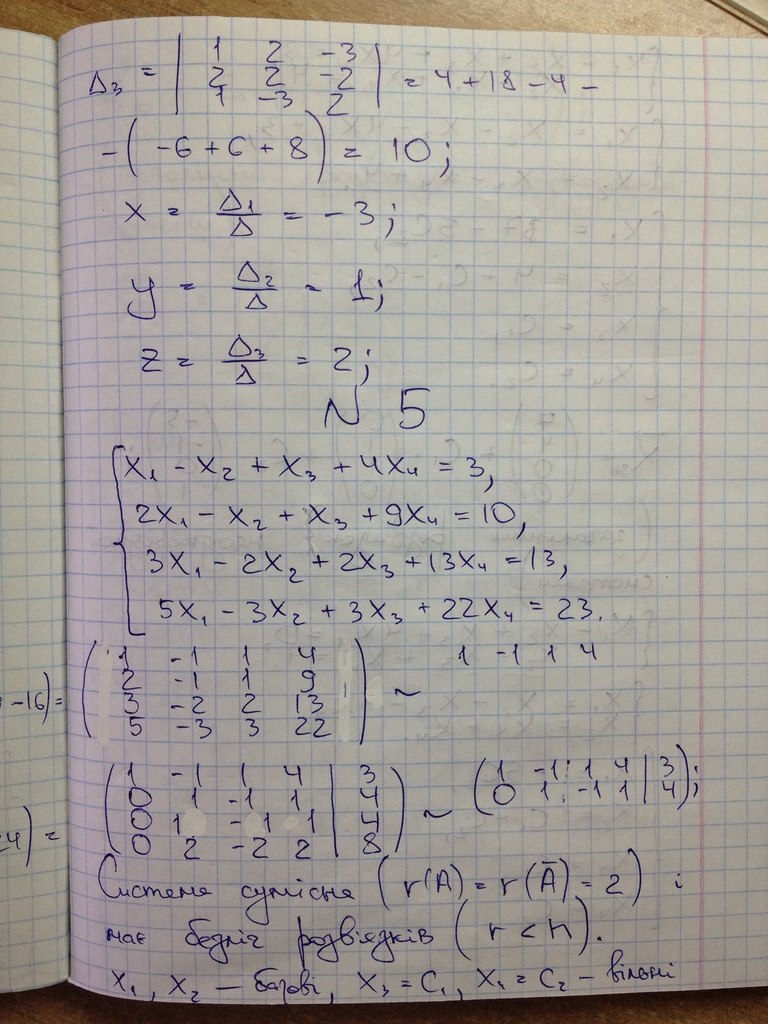 Δ₃ = | 1 2 -3 |
| 2 2 -2 | = 4 + 18 - 4 -
| 1 -3 2 |
- ( -6 + 6 + 8 ) = 10;
x = Δ₁/Δ = -3;
y = Δ₂/Δ = 1;
z = Δ₃/Δ = 2;
N 5
{ x₁ - x₂ + x₃ + 4x₄ = 3,
2x₁ - x₂ + x₃ + 9x₄ = 10,
3x₁ - 2x₂ + 2x₃ + 13x₄ = 13,
5x₁ - 3x₂ + 3x₃ + 22x₄ = 23.
-16) = ( 1 -1 1 4 ) 1 -1 1 4
( 2 -1 1 9 ) ~
( 3 -2 2 13 )
( 5 -3 3 22 )
( 1 -1 1 4 | 3 ) ( 1 -1 1 4 | 3 )
( 0 1 -1 1 | 4 ) ~ ( 0 1 -1 1 | 4 );
( 0 1 -1 1 | 4 )
4) = ( 0 2 -2 2 | 8 )
Система сумісна ( r(A) = r(Ā) = 2 ) і
має безліч розв'язків ( r < n ).
x₁, x₂ — базові, x₃ = C₁, x₄ = C₂ — вільні